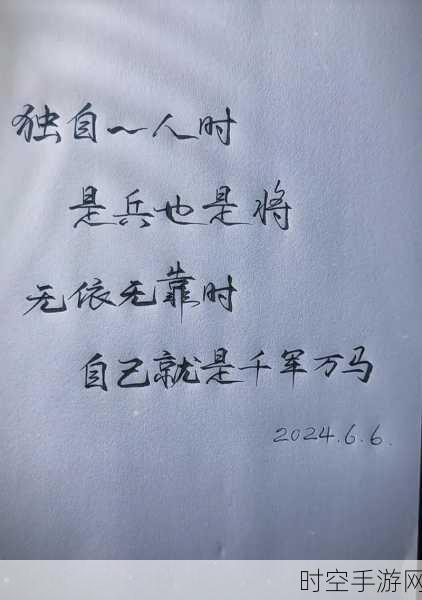 独自一人时
是兵也是将
无依无靠时
自己就是千军万马
2024.6.6.
时空手游网